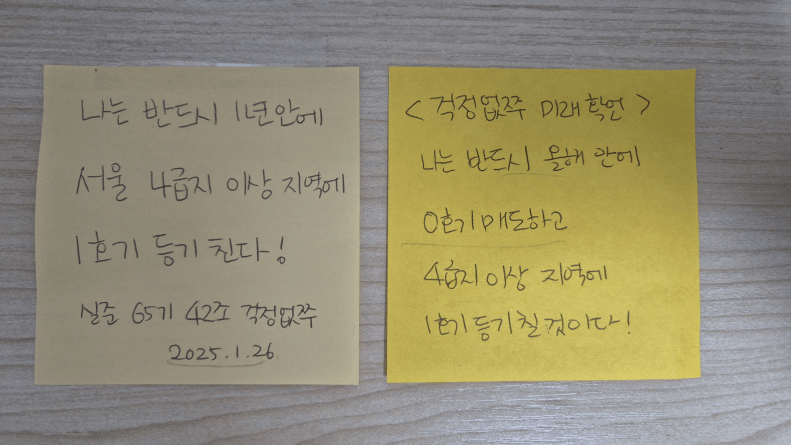 나는 반드시 1년안에
서울 4급지 이상 지역에
1호기 등기 친다!
실준 65기 42조 걱정없쭈
2025.1.26
<걱정없쭈 미래 확언>
나는 반드시 올해 안에
0호기 매도하고
4급지 이상 지역에
1호기 등기칠 것이다!